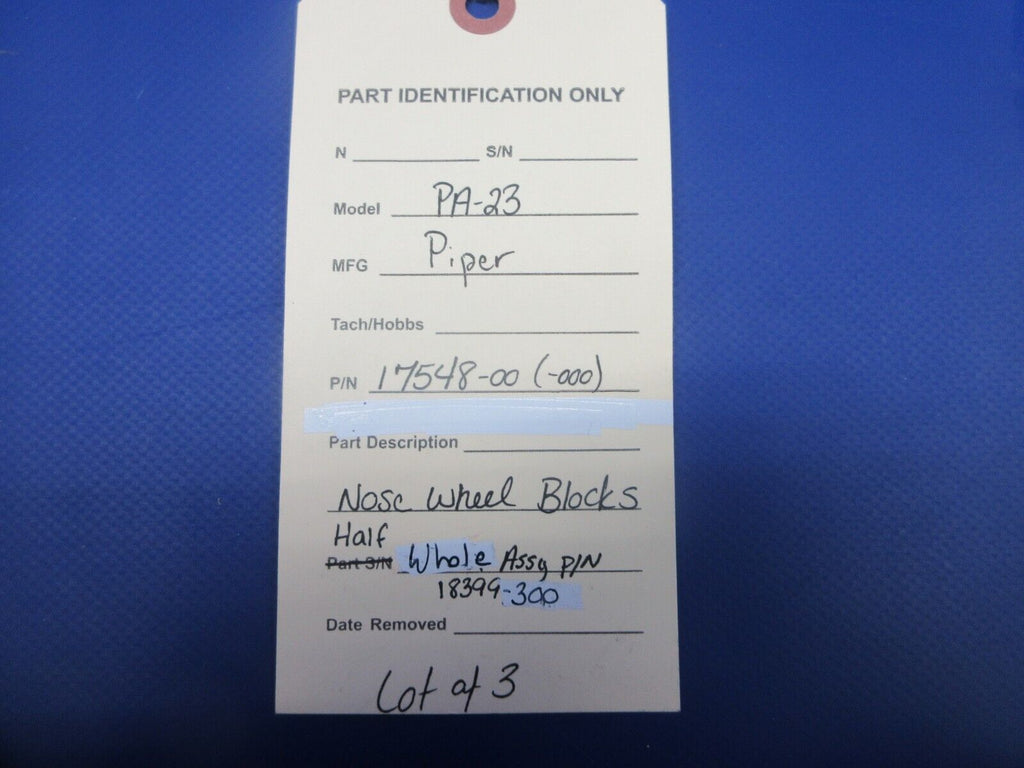 PART IDENTIFICATION ONLY
N S/N
Model PA-23
MFG Piper
Tach/Hobbs
P/N 17548-00 (-000)
Part Description
Nose Wheel Blocks
Half
Part S/N Whole Assy P/N
18399-300
Date Removed
Lot of 3